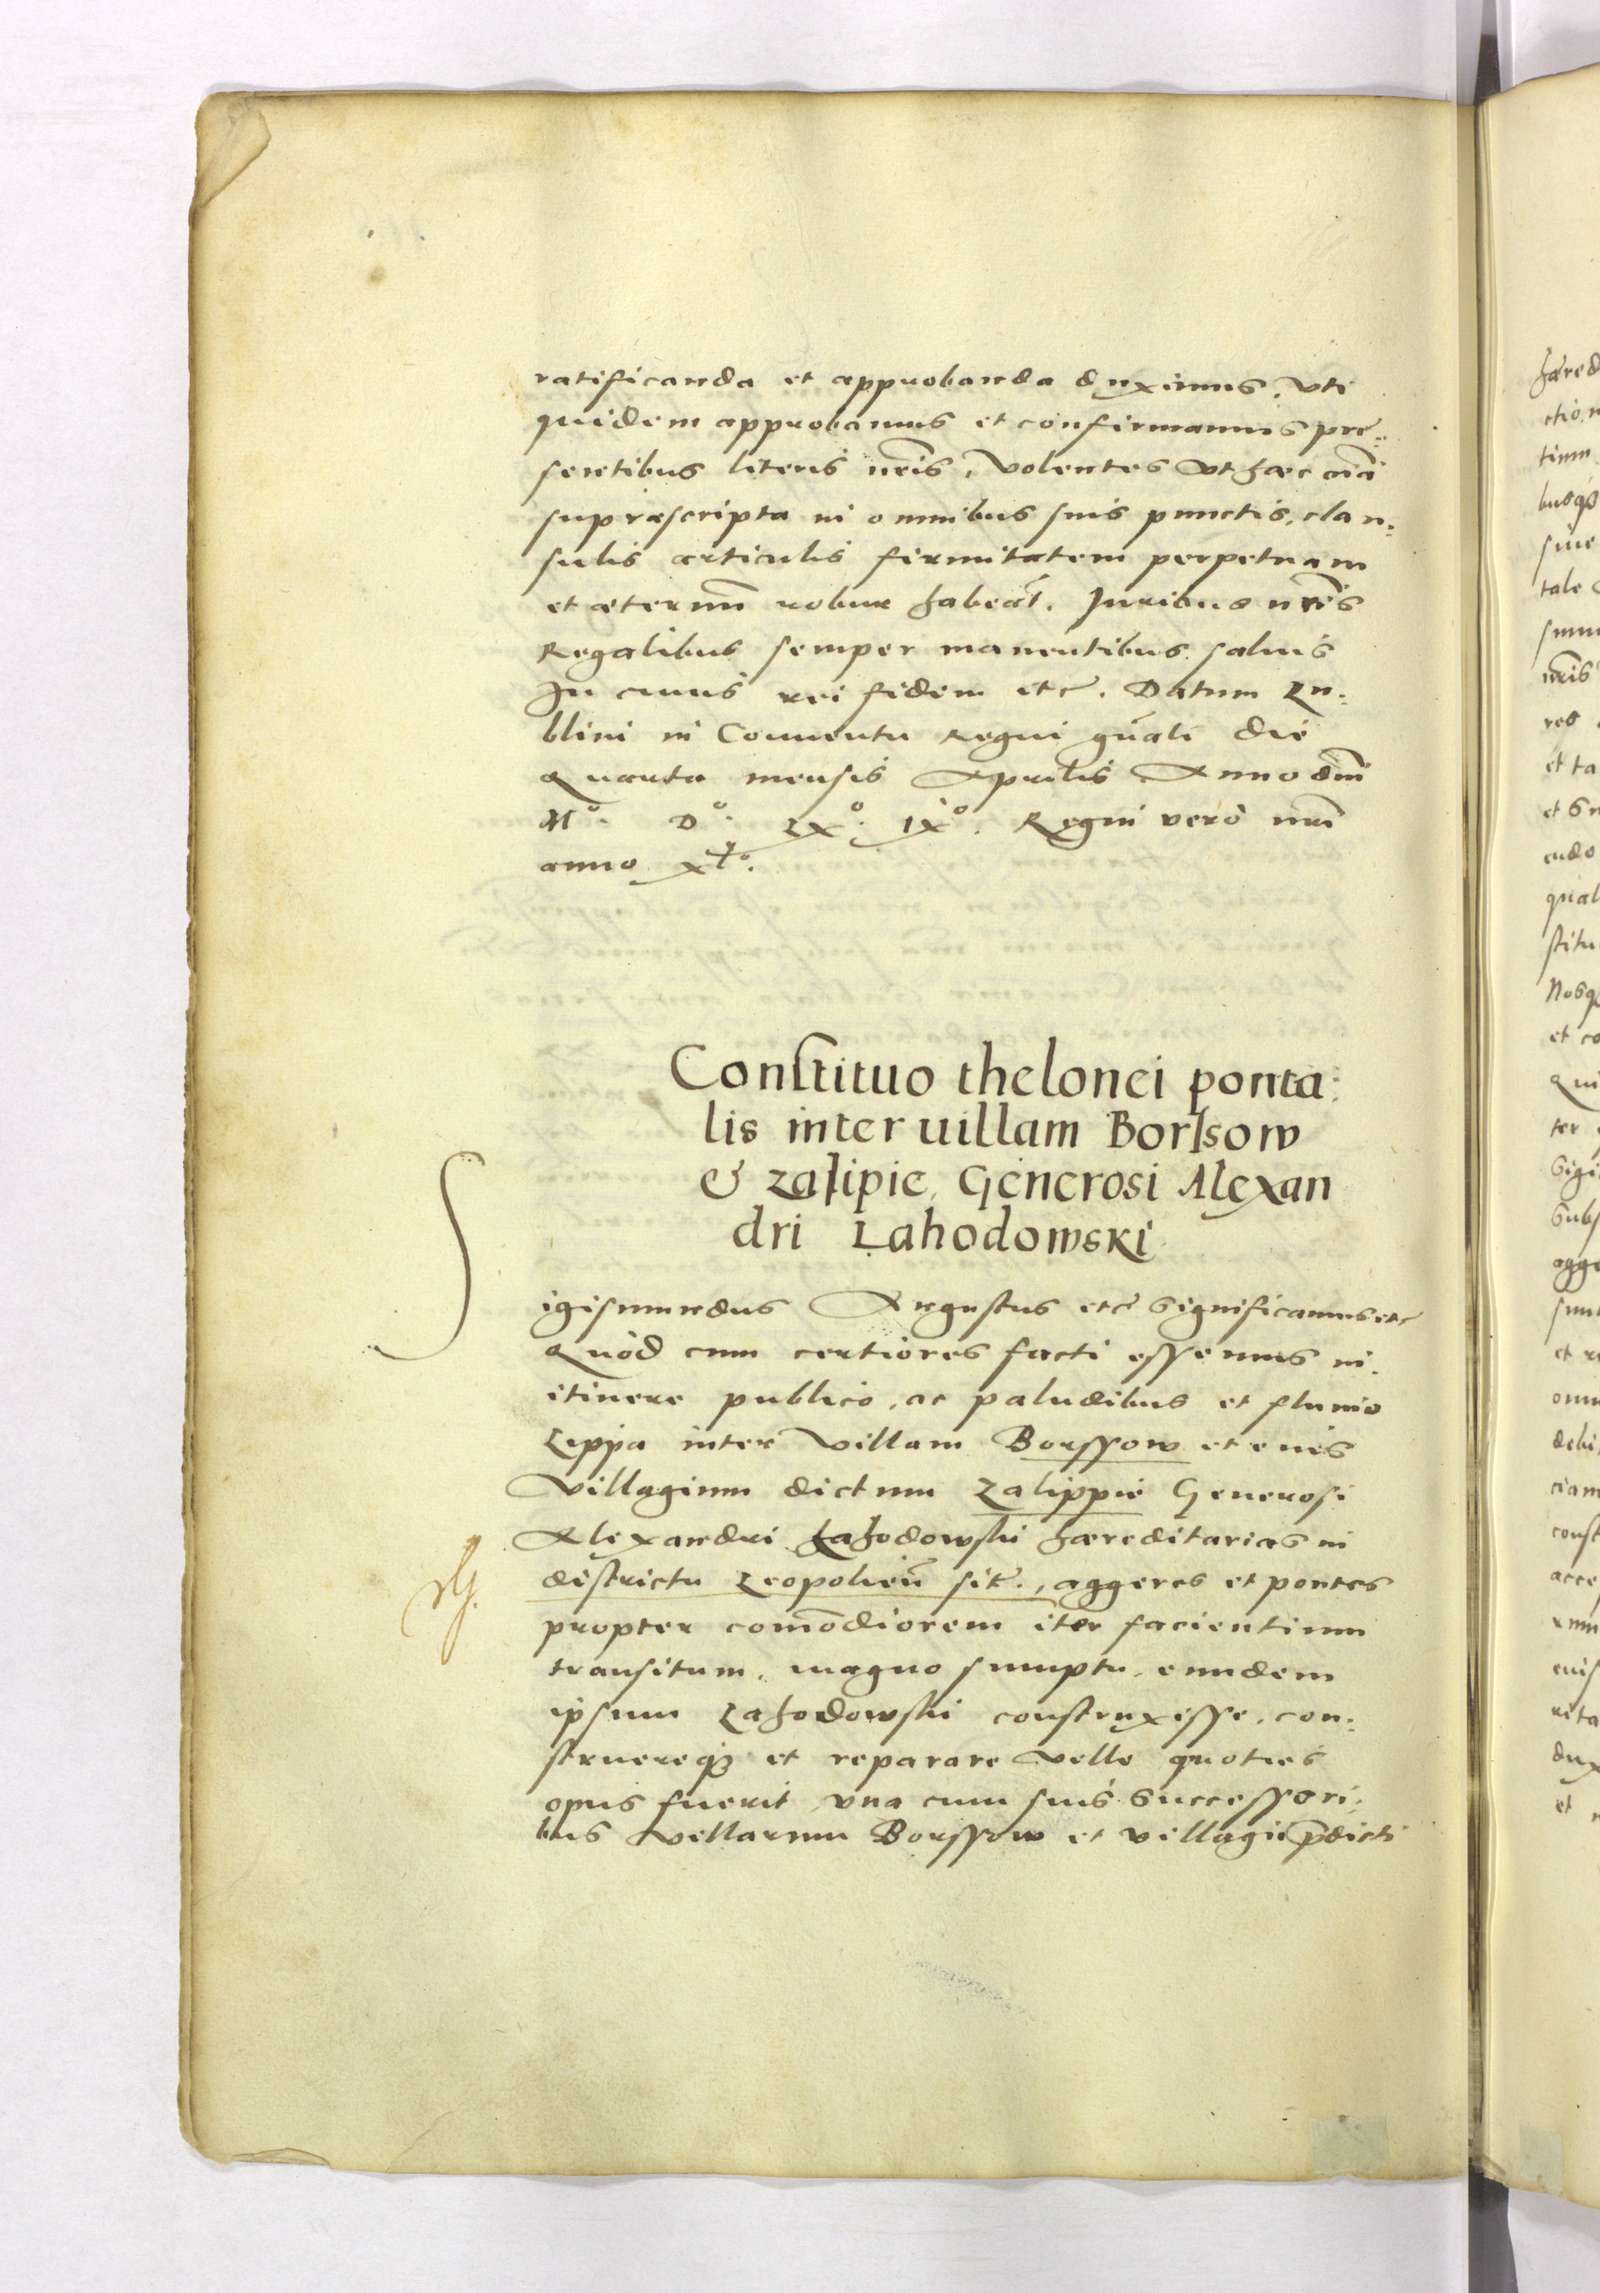 ratificanda et approbanda duximus, vti
quidem approbamus et confirmamus pre-
sentibus literis nris, volentes vt haec oia
supraescripta in omnibus suis punctis, clau-
sulis articulis firmitatem perpetuam
et aeternu robur habeat. Juribus nris
Regalibus semper manentibus saluis
In cuius rei fidem etc. Datum Lu-
blini in Conuentu Regni gnali die
quarta mensis Aprilis Anno dni
Mo. Do. LXo. IXo. Regni vero nri
anno XLo.
Constituo thelonei ponta-
lis inter uillam Borssow
& zalipie, Generosi Alexan
dri Lahodowski
Sigismundus Augustus etc Significamus etc
Quod cum certiores facti essemus in
itinere publico, ac paludibus et fluuio
Lippa inter villam Borssow et eius
villagium dictum Zalippie Generosi
Alexandri Lahodowski haereditarias in
districtu Leopolien sit., aggeres et pontes
propter comodiorem iter facientium
transitum, magno sumptu, eundem
ipsum Lahodowski construxisse, con-
struereq et reparare velle quoties
opus fuerit, vna cum suis successori-
bus villarum Borssow et villagii pdicti